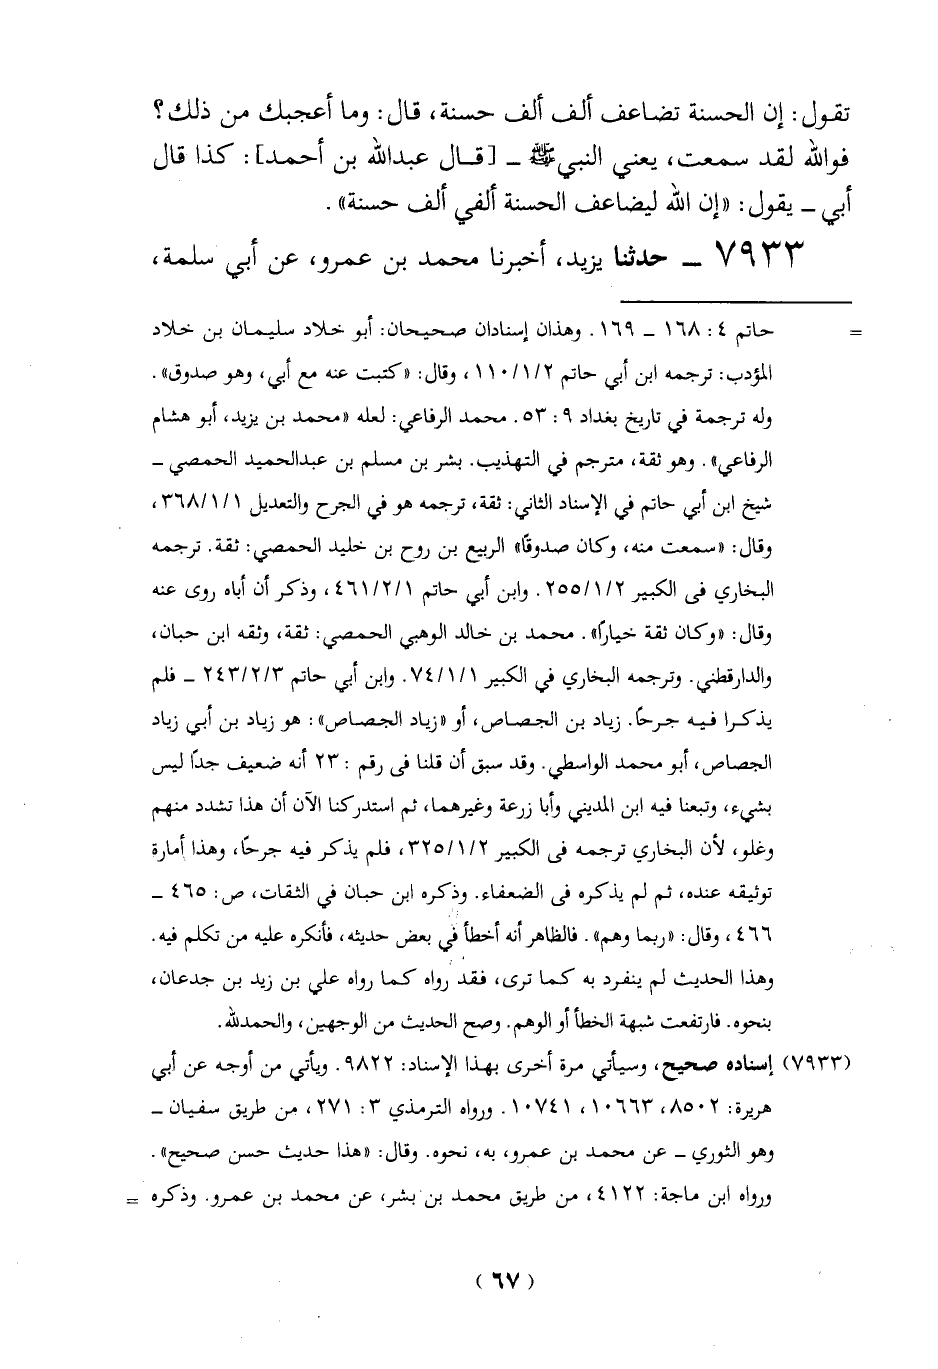 تقول: إن الحسنة تضاعف ألف ألف حسنة، قال: وما أعجبك من ذلك؟
فوالله لقد سمعت، يعني النبي ﷺ ـ [قال عبدالله بن أحمد]: كذا قال
أبي ـ يقول: «إن الله ليضاعف الحسنة ألفي ألف حسنة».
٧٩٣٣ ـ حدثنا يزيد، أخبرنا محمد بن عمرو، عن أبي سلمة،
= حاتم ٤: ١٦٨ ـ ١٦٩. وهذان إسنادان صحيحان: أبو خلاد سليمان بن خلاد
المؤدب: ترجمه ابن أبي حاتم ١١٠/١/٢، وقال: «كتبت عنه مع أبي، وهو صدوق».
وله ترجمة في تاريخ بغداد ٩: ٥٣. محمد الرفاعي: لعله «محمد بن يزيد، أبو هشام
الرفاعي». وهو ثقة، مترجم في التهذيب. بشر بن مسلم بن عبدالحميد الحمصي ـ
شيخ ابن أبي حاتم في الإسناد الثاني: ثقة، ترجمه هو في الجرح والتعديل ٣٦٨/١/١،
وقال: «سمعت منه، وكان صدوقًا» الربيع بن روح بن خليد الحمصي: ثقة. ترجمه
البخاري فى الكبير ٢٥٥/١/٢. وابن أبي حاتم ٤٦١/٢/١، وذكر أن أباه روى عنه
وقال: «وكان ثقة خيارًا». محمد بن خالد الوهبي الحمصي: ثقة، وثقه ابن حبان،
والدارقطني. وترجمه البخاري في الكبير ٧٤/١/١. وابن أبي حاتم ٢٤٣/٢/٣ ـ فلم
يذكرا فيه جرحًا. زياد بن الجصاص، أو «زياد الجصاص»: هو زياد بن أبي زياد
الجصاص، أبو محمد الواسطي. وقد سبق أن قلنا فى رقم : ٢٣ أنه ضعيف جدًا ليس
بشيء، وتبعنا فيه ابن المديني وأبا زرعة وغيرهما، ثم استدركنا الآن أن هذا تشدد منهم
وغلو، لأن البخاري ترجمه فى الكبير ٣٢٥/١/٢، فلم يذكر فيه جرحًا، وهذا أمارة
توثيقه عنده، ثم لم يذكره فى الضعفاء. وذكره ابن حبان في الثقات، ص: ٤٦٥ ـ
٤٦٦، وقال: «ربما وهم». فالظاهر أنه أخطأ في بعض حديثه، فأنكره عليه من تكلم فيه.
وهذا الحديث لم ينفرد به كما ترى، فقد رواه كما رواه علي بن زيد بن جدعان،
بنحوه. فارتفعت شبهة الخطأ أو الوهم. وصح الحديث من الوجهين، والحمدلله.
(٧٩٣٣) إسناده صحيح، وسيأتي مرة أخرى بهذا الإسناد: ٩٨٢٢. ويأتي من أوجه عن أبي
هريرة: ٨٥٠٢، ١٠٦٦٣، ١٠٧٤١. ورواه الترمذي ٣: ٢٧١، من طريق سفيان ـ
وهو الثوري ـ عن محمد بن عمرو، به، نحوه. وقال: «هذا حديث حسن صحيح».
ورواه ابن ماجة: ٤١٢٢، من طريق محمد بن بشر، عن محمد بن عمرو. وذكره =
(٦٧)